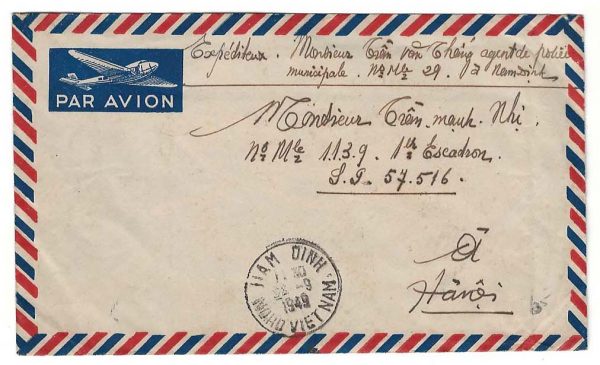 PAR AVION
Expéditeur. Monsieur Trần văn Thống agent de police
municipale. No Mle 29. à Namđinh
Monsieur Trần mạnh Nhị.
No Mle 1139. 1er Escadron.
S.P. 57.516.
à
Hànội
NAM DINH
-9
1949
NORD VIET NAM